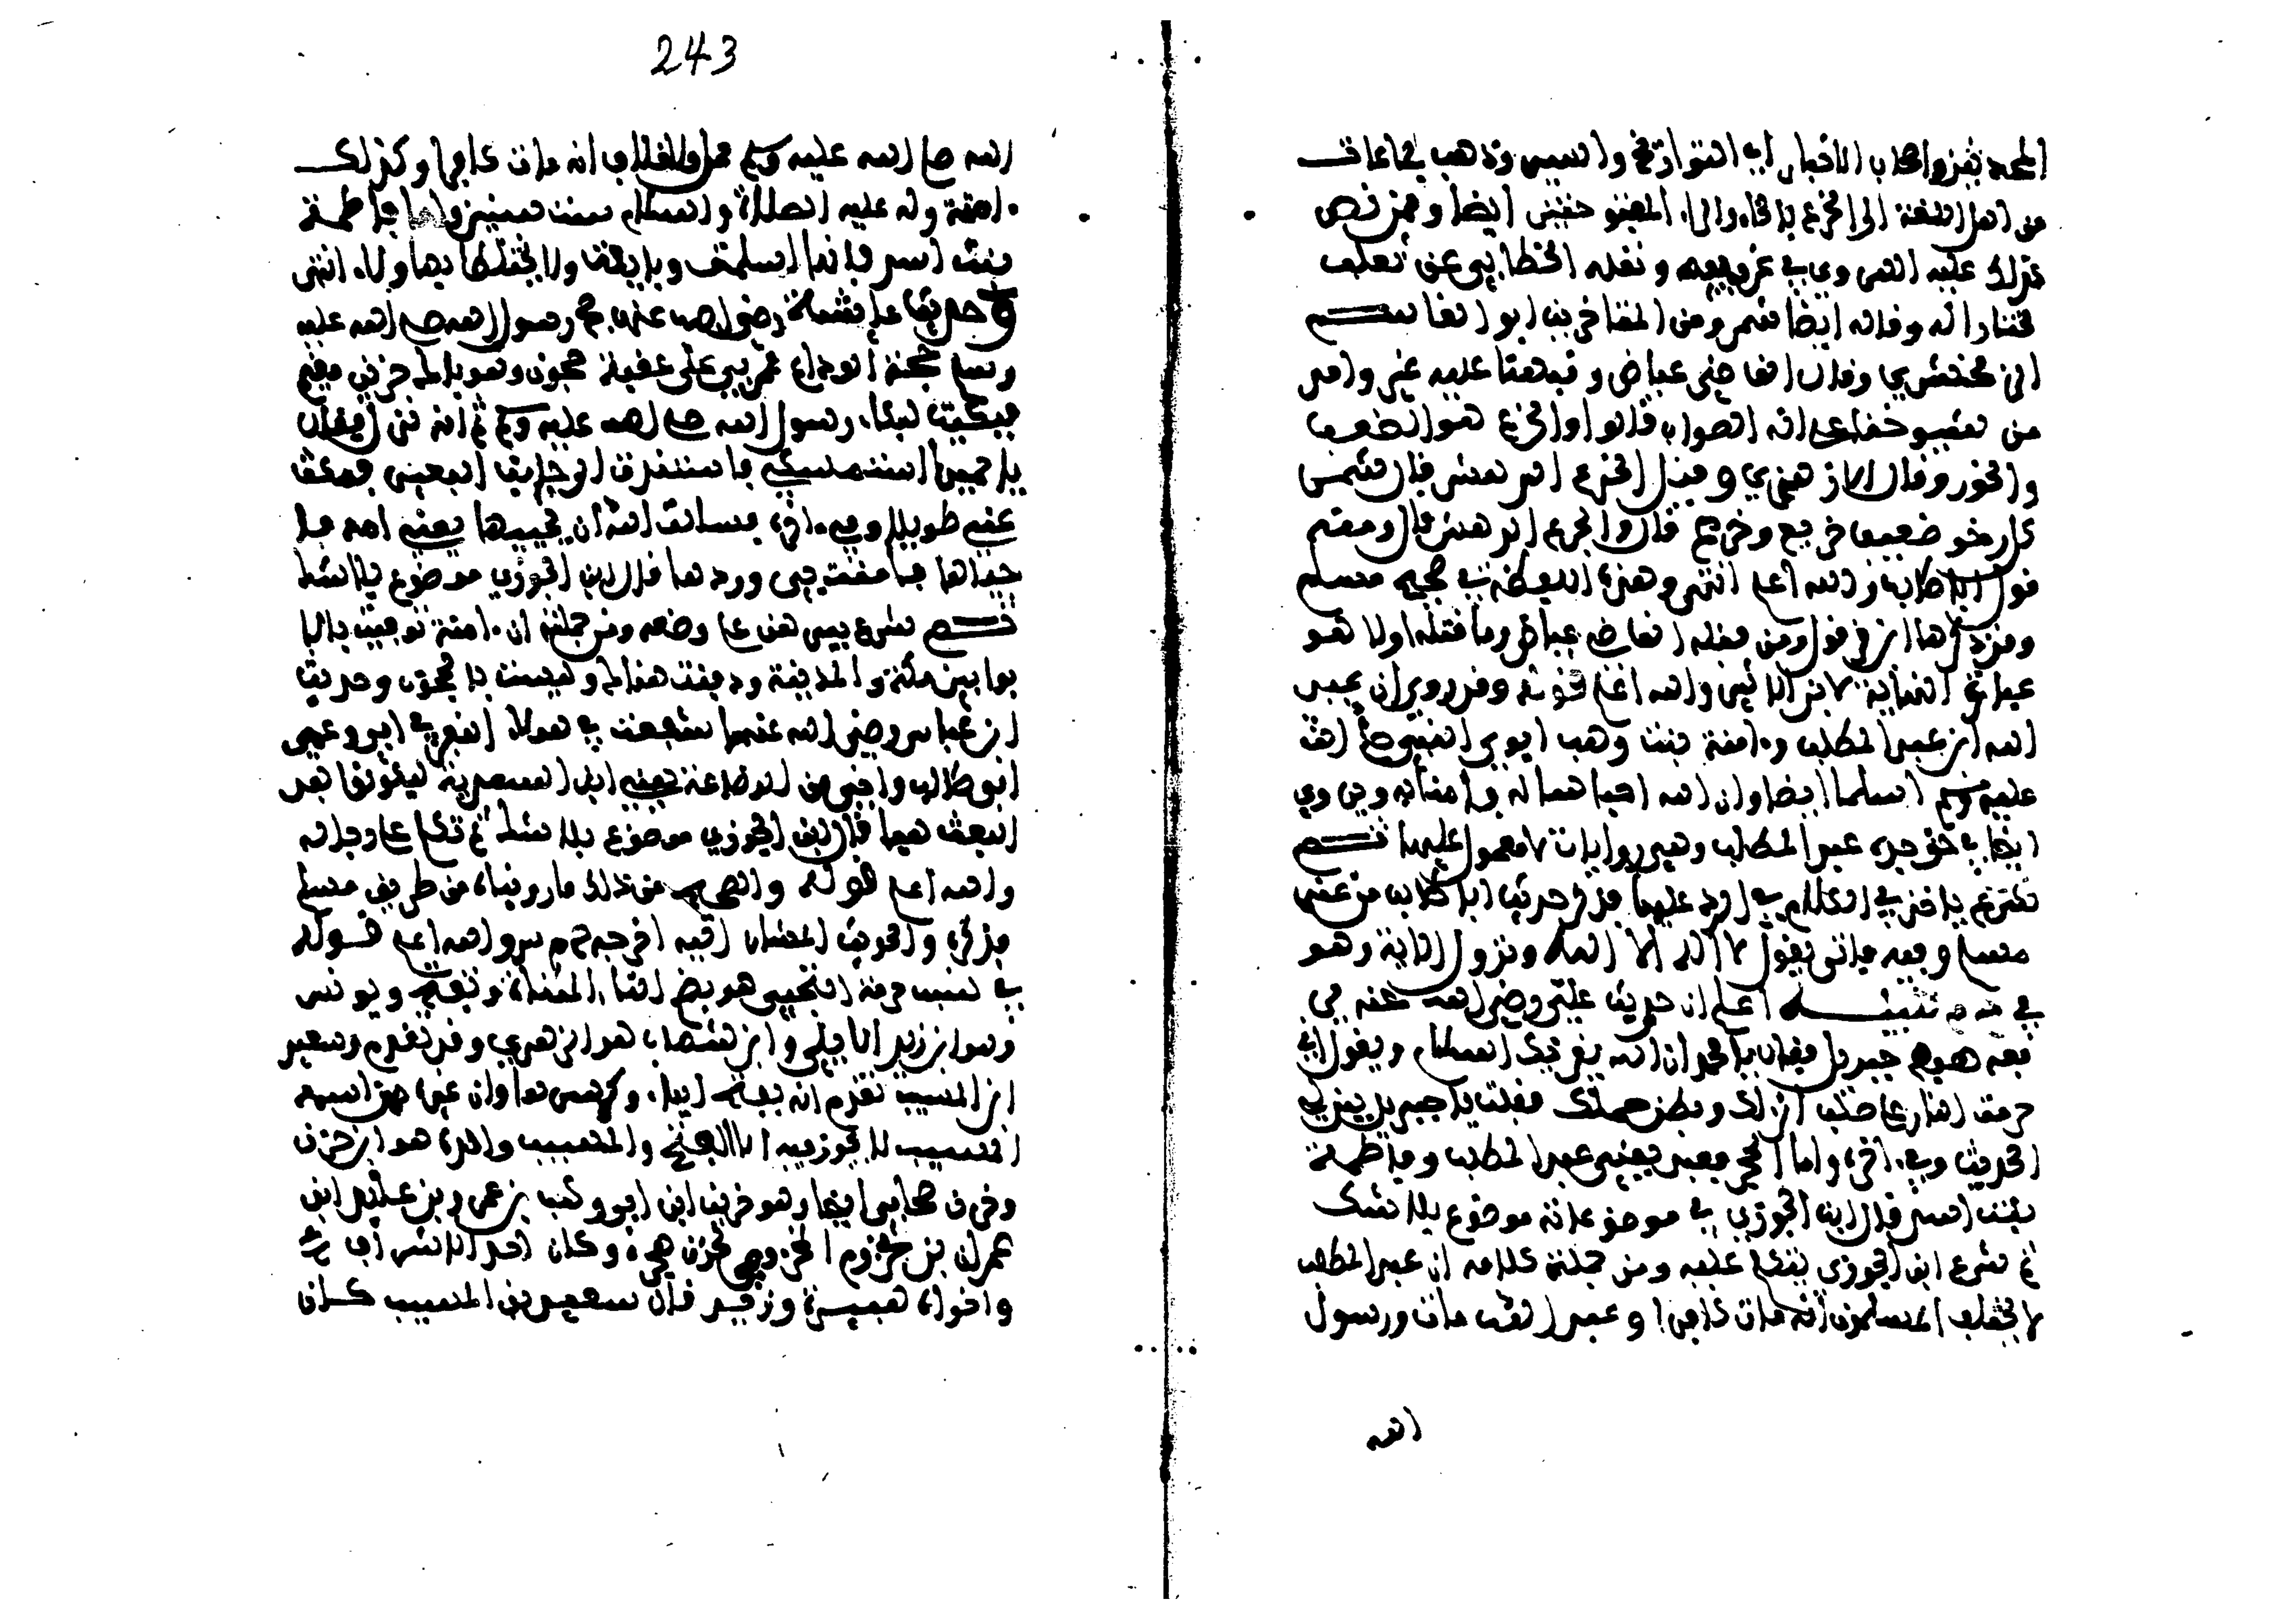 المحدثين واصحاب الاخبار اي التواريخ والسير وذهب جماعات
من اهل اللغة الى الخرع بالخاء والراء المفتوحتين ايضا وممن نص
كذلك عليه الهروي في غريبيه ونقله الخطابي عن ثعلب
مختارا له وقاله ايضا شمر ومن المتاخرين ابو القاسم
الزمخشري وقال القاضي عياض ونبهنا عليه غير واحد
من شيوخنا على انه الصواب قالوا والخرع هو الضعف
والخور وقال الازهري وقيل الخرع الدهش قال شمر
كل رخو ضعيف خريع وخرع قال والخرع الدهش قال ومنه
قول ابي طالب والله اعلم انتهى وهذه اللفظة في صحيح مسلم
عبارة النهاية لابن الاثير والله اعلم قوله وقد روي ان عبد
الله بن عبد المطلب وامنة بنت وهب ابوي النبي صلى الله
عليه وسلم اسلما ايضا وان الله احياهما له فامنا به وروي
ايضا في حق جده عبد المطلب وهي روايات لا معول عليها ثم
شرع ياخذ في الكلام في الرد عليها فذكر حديث ابا طالب من عند
مسلم وفيه فابى يقول لا اله الا الله ونزول الاية وهو
في خ م تنبيه اعلم ان حديث علي رضي الله عنه في
فيه هبط جبريل فقال يا محمد ان الله يقرئك السلام ويقول اني
حرمت النار على صلب انزلك وبطن حملك فقلت يا جبريل بين لي
الحديث وفي اخره واما الحجر فعبد يعني عبد المطلب وفاطمة
بنت اسد قال ابن الجوزي في موضوعاته موضوع بلا شك
ثم شرع ابن الجوزي يتكلم عليه ومن جملة كلامه ان عبد المطلب
لا يختلف المسلمون انه مات كافرا وعبد الله مات ورسول
الله
243
الله صلى الله عليه وسلم حمل ولا خلاف انه مات كافرا وكذلك
امنة وله عليه الصلاة والسلام ست سنين واما فاطمة
بنت اسد فانها اسلمت وبايعت ولا يختلط بهاولاء انتهى
وحديث عائشة رضي الله عنها حج رسول الله صلى الله عليه
وسلم حجة الوداع فمر بي على عقبة الحجون وهو باك حزين مغتم
فبكيت لبكاء رسول الله صلى الله عليه وسلم ثم انه نزل فقال
يا حميرا استمسكي فاستندت الى جانب البعير فمكث
عني طويلا وفي اخره فسالت الله ان يحييها يعني امه فا
حياها فامنت بي وردها قال ابن الجوزي موضوع بلا شك
ثم شرع يبرهن على وضعه ومن جملته ان امنة توفيت بالا
بوا بين مكة والمدينة ودفنت هنالك وليست بالحجون وحديث
ابن عباس رضي الله عنهما شفعت في هولاء النفر في ابي وعمي
ابو طالب واخي من الرضاعة يعني ابن السعدية ليكونوا بعد
البعث هبا قال ابن الجوزي موضوع بلا شك ثم تكلم على رجاله
والله اعلم قوله والصحيح من ذلك ما رويناه من طريق مسلم
فذكره والحديث المشار اليه اخرجه خ م س والله اعلم قوله
في نسب حرملة التجيبي هو بضم التاء المثناة وفتحها ويونس
وهو ابن زيد الايلي وابن شهاب هو الزهري وقد تقدم وسعيد
ابن المسيب تقدم انه بفتح الياء وكسرها وان غيره ممن اسمه
المسيب لا يجوز فيه الا الفتح والمسيب والده هو ابن حزن
وحزن صحابي ايضا وهو حزن ابن ابي وهب بن عمرو بن عايذ ابن
عمران بن مخزوم المخزومي لحزن هجرة وكان احد الاشراف
واخواه هبيرة ويزيد قال سعيد بن المسيب كان